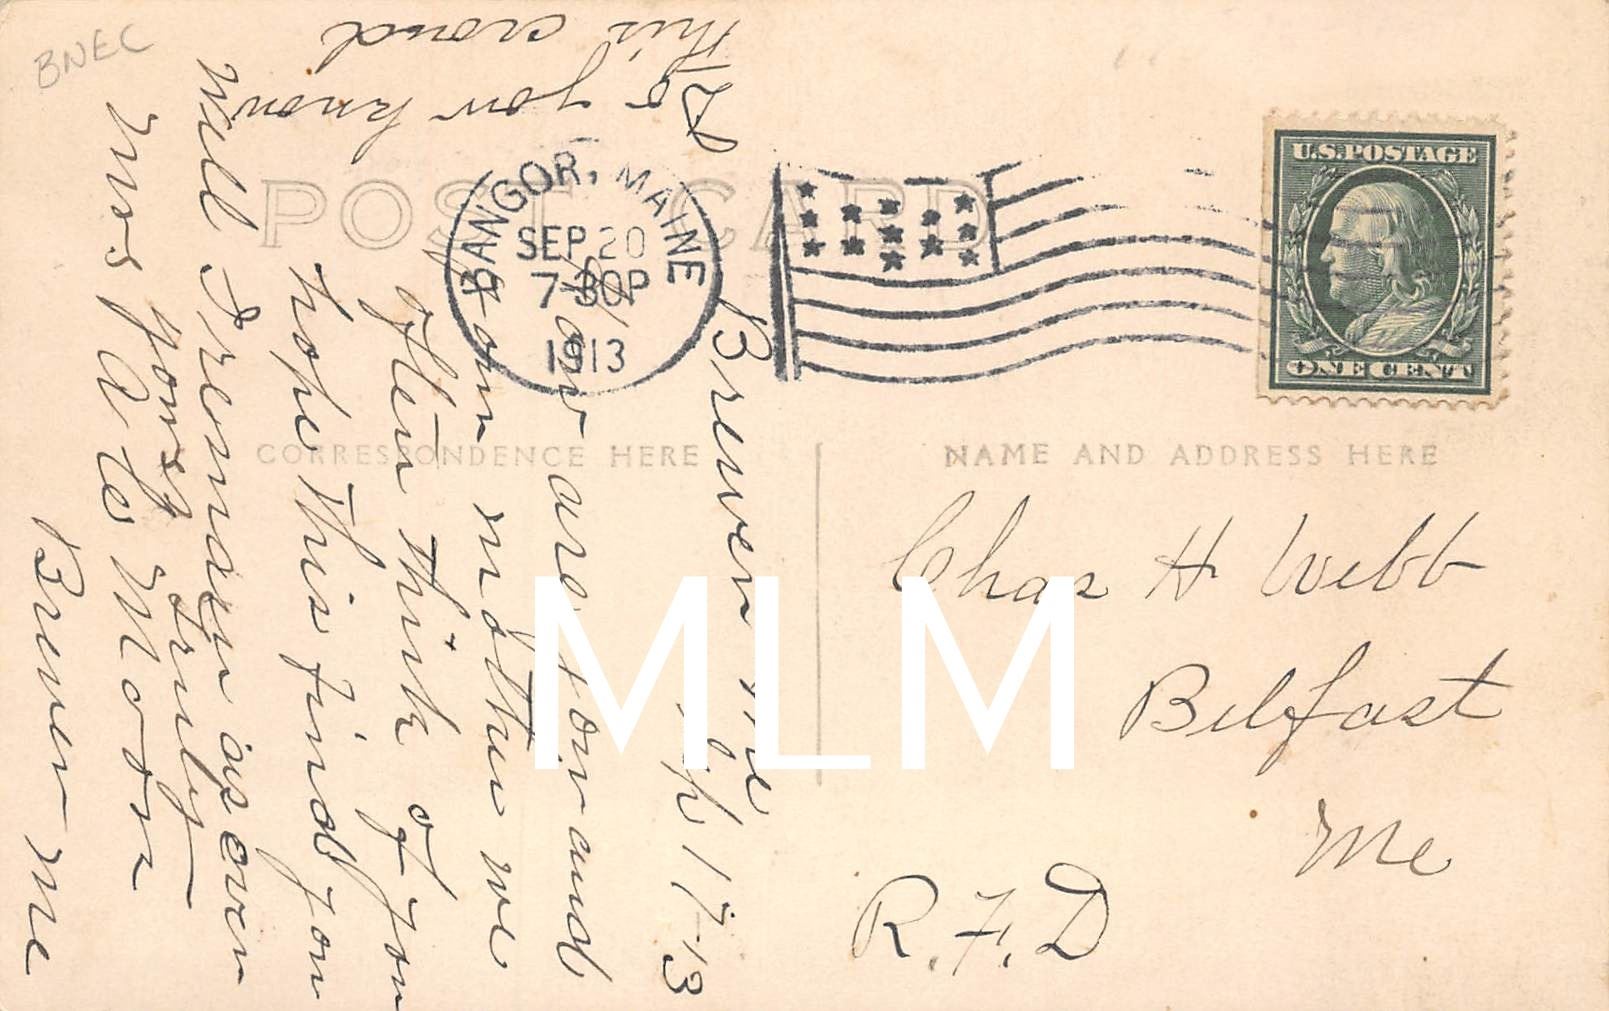 BNEC
Do you know
this crowd
Brewer Me
17-13
How are you and
Your mother we
often think of you
hope this find you
Well I remain as ever
yours truly
Mrs A Le Moor
Brewer Me
POST CARD
BANGOR, MAINE
SEP 20
7-30P
1913
U.S.POSTAGE
ONE CENT
CORRESPONDENCE HERE
NAME AND ADDRESS HERE
Chas H Webb
Belfast
Me
R.F.D
MLM